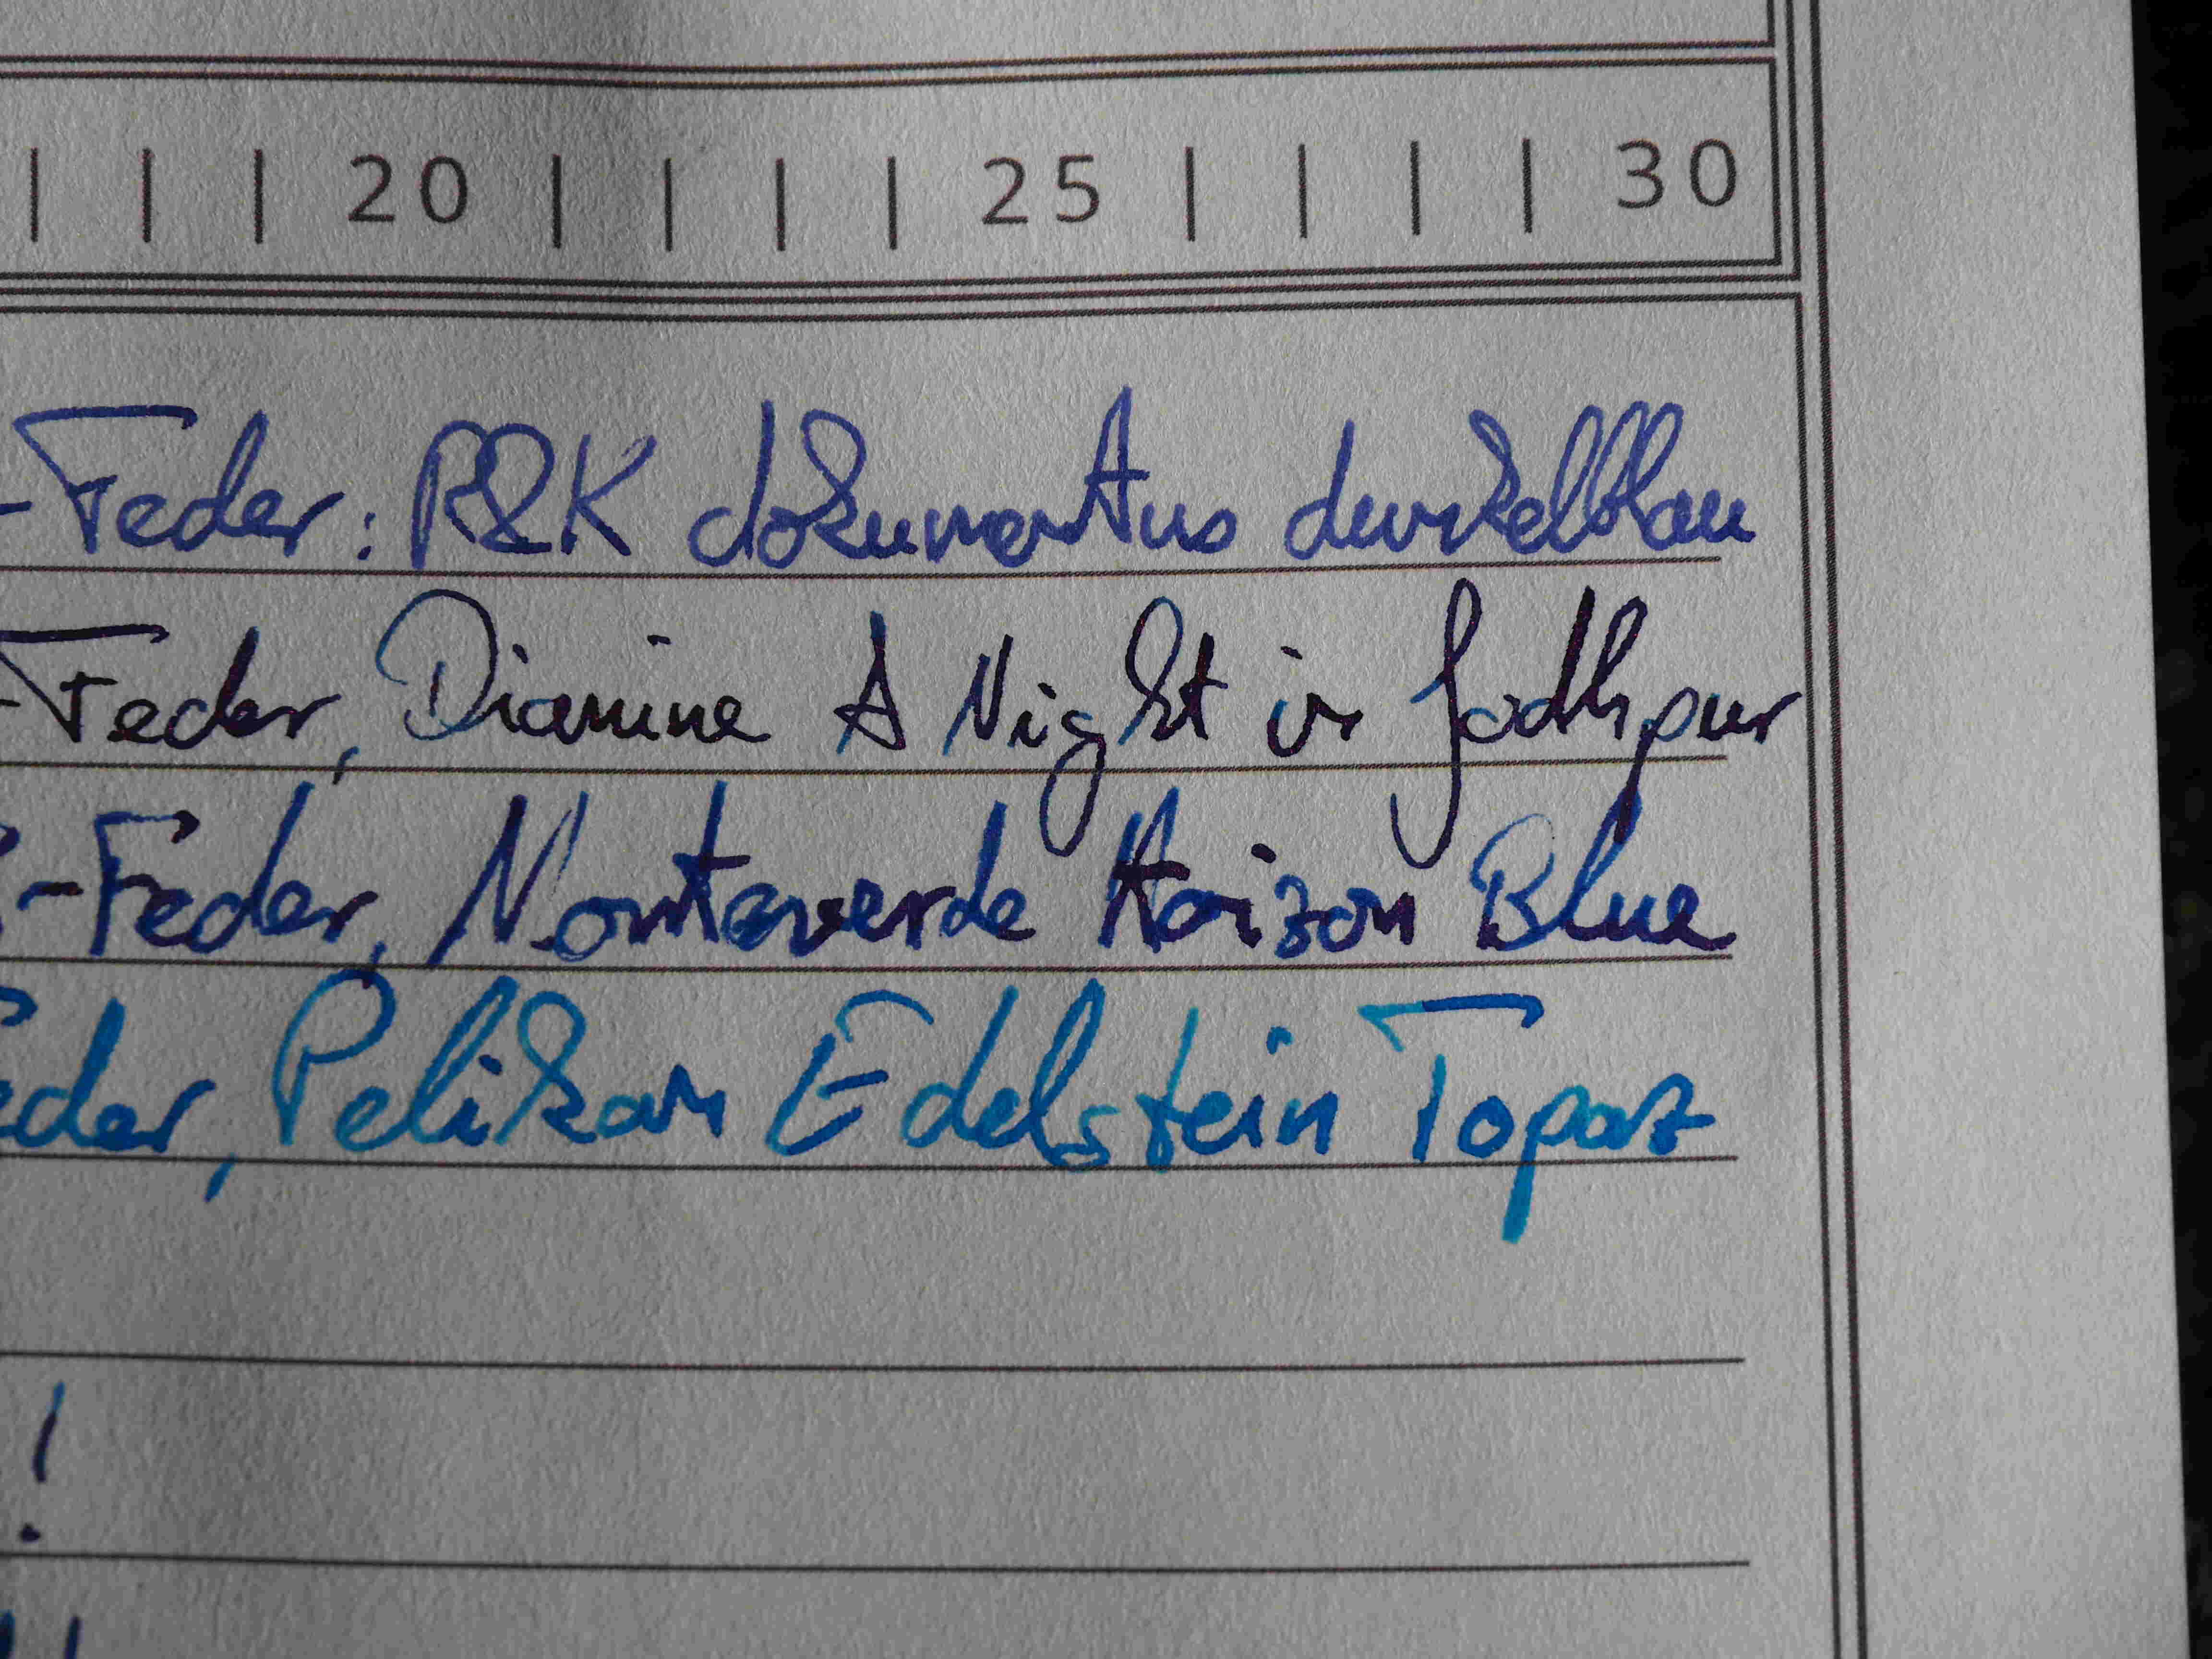 | | | 20 | | | | 25 | | | | 30
-Feder: R&K dokumentus dunkelblau
-Feder, Diamine A Night in Jodhpur
-Feder, Monteverde Horizon Blue
eder, Pelikan Edelstein Topaz
!